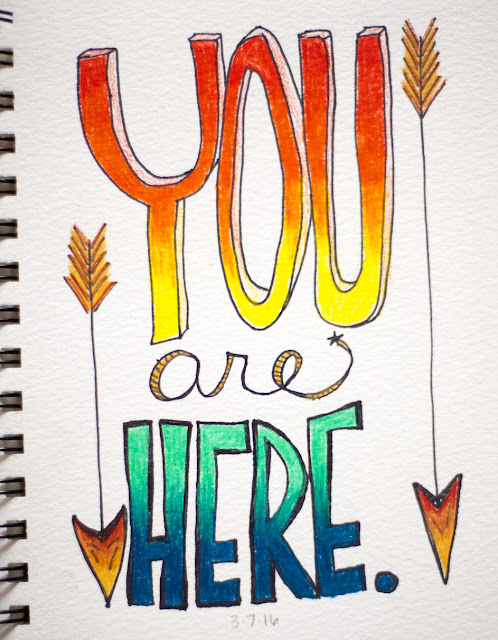 YOU
are
HERE.
3·7·16